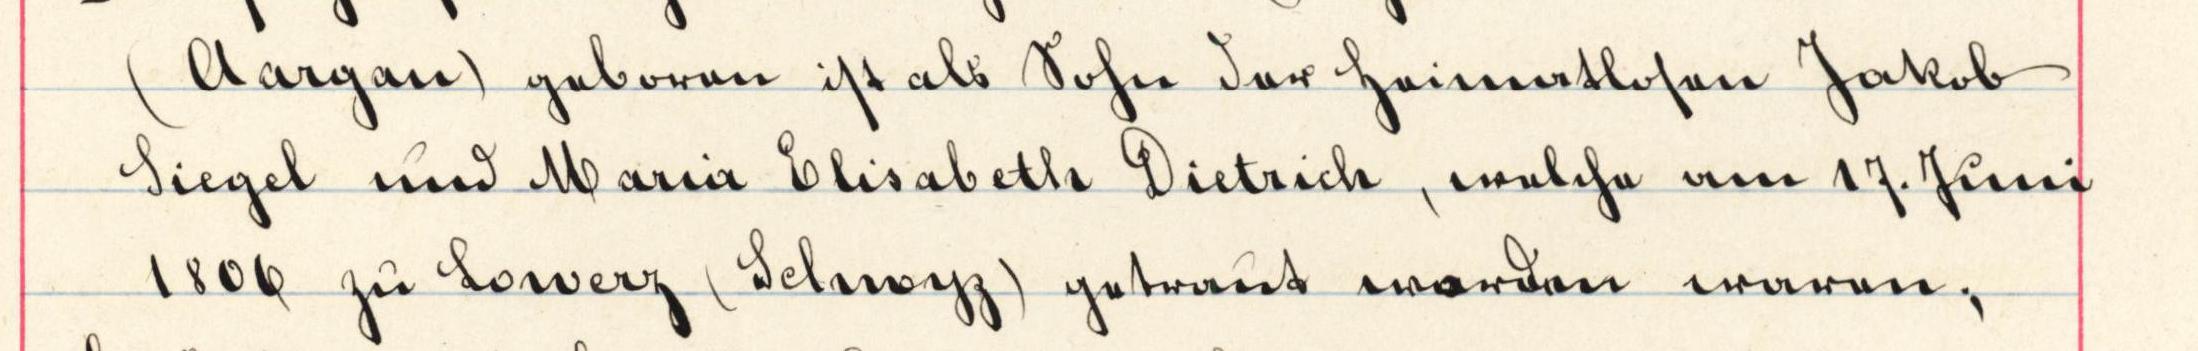 (Aargau) geboren ist als Sohn der Heimatlosen Jakob
Siegel und Maria Elisabeth Dietrich, welche am 17. Juni
1806 zu Lowerz (Schwyz) getraut worden waren;